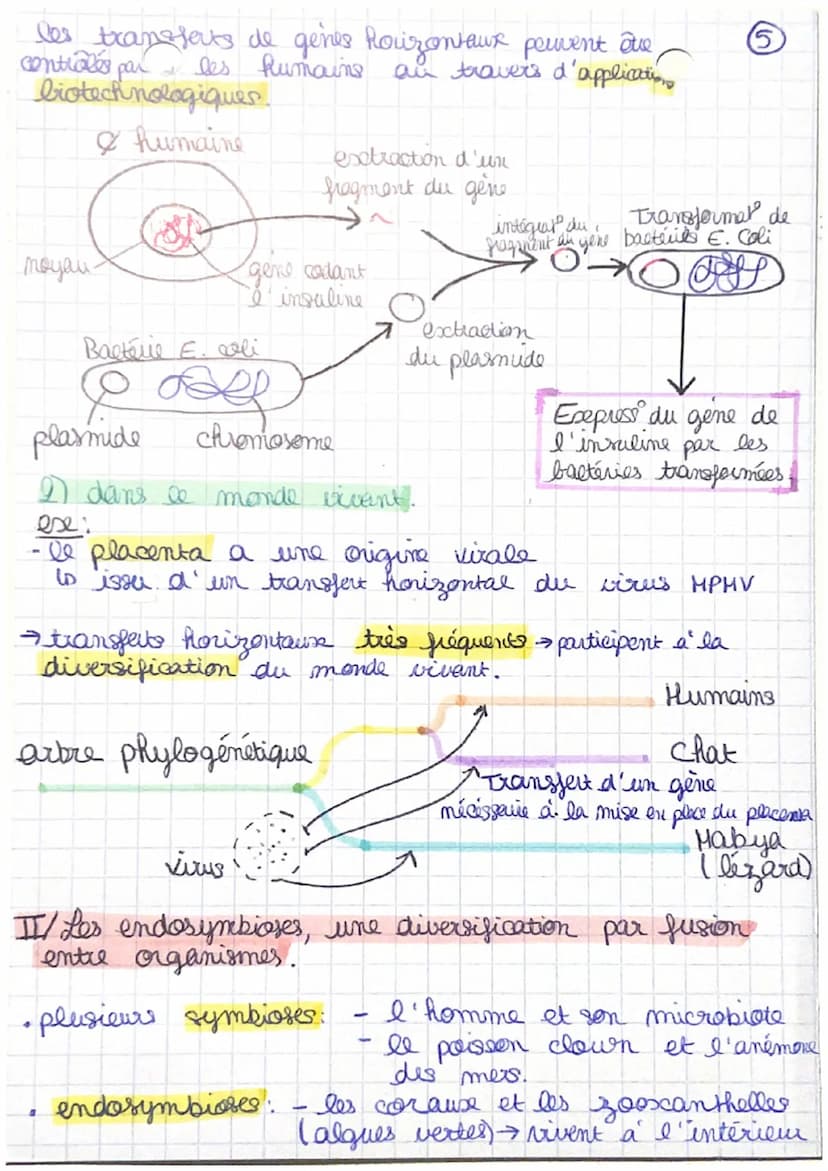 5
les transferts de gènes horizontaux peuvent être
contrôlés par les humains au travers d'applications
biotechnologiques.
₵ humaine
extraction d'un
fragment du gène
noyau
gène codant
l'insuline
integrat° du
fragment du gène
Transformat° de
bactéries E. Coli
Bactérie E. coli
extraction
du plasmide
plasmide
chromosome
Express° du gène de
l'insuline par les
bactéries transformées.
2) dans le monde vivant.
ex:
- le placenta a une origine virale
↳ issu d'un transfert horizontal du virus MPMV
→ transferts horizontaux très fréquents → participent à la
diversification du monde vivant.
Humains
arbre phylogénétique
Chat
Transfert d'un gène
nécessaire à la mise en place du placenta
Mabya
(lézard)
virus
II/ Les endosymbioses, une diversification par fusion
entre organismes.
• plusieurs symbioses: - l'homme et son microbiote
- le poisson clown et l'anémone
des mers.
• endosymbioses: - les coraux et les zooxanthelles
(algues vertes) → vivent à l'intérieur